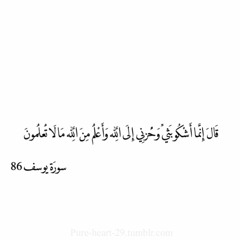 قَالَ إِنَّمَا أَشْكُو بَثِّي وَحُزْنِي إِلَى اللَّهِ وَأَعْلَمُ مِنَ اللَّهِ مَا لَا تَعْلَمُونَ
سورة يوسف 86